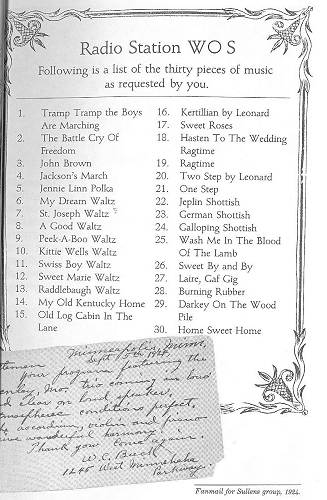 Radio Station WOS
Following is a list of the thirty pieces of music
as requested by you.
1. Tramp Tramp the Boys
Are Marching
2. The Battle Cry Of
Freedom
3. John Brown
4. Jackson's March
5. Jennie Linn Polka
6. My Dream Waltz
7. St. Joseph Waltz
8. A Good Waltz
9. Peek-A-Boo Waltz
10. Kittie Wells Waltz
11. Swiss Boy Waltz
12. Sweet Marie Waltz
13. Raddlebaugh Waltz
14. My Old Kentucky Home
15. Old Log Cabin In The
Lane
16. Kertillian by Leonard
17. Sweet Roses
18. Hasten To The Wedding
Ragtime
19. Ragtime
20. Two Step by Leonard
21. One Step
22. Jeplin Shottish
23. German Shottish
24. Galloping Shottish
25. Wash Me In The Blood
Of The Lamb
26. Sweet By and By
27. Laire, Gaf Gig
28. Burning Rubber
29. Darkey On The Wood
Pile
30. Home Sweet Home
Minneapolis, Minn.
Sept 1924
your program featuring the
Mo. trio coming in loud
and clear on loud speaker,
atmospheric conditions perfect,
accordion, violin and piano
wonderful harmony.
Thank you. Come again.
W.C. Buell
1245 West Minnehaha
Parkway.
Fanmail for Sullens group, 1924.